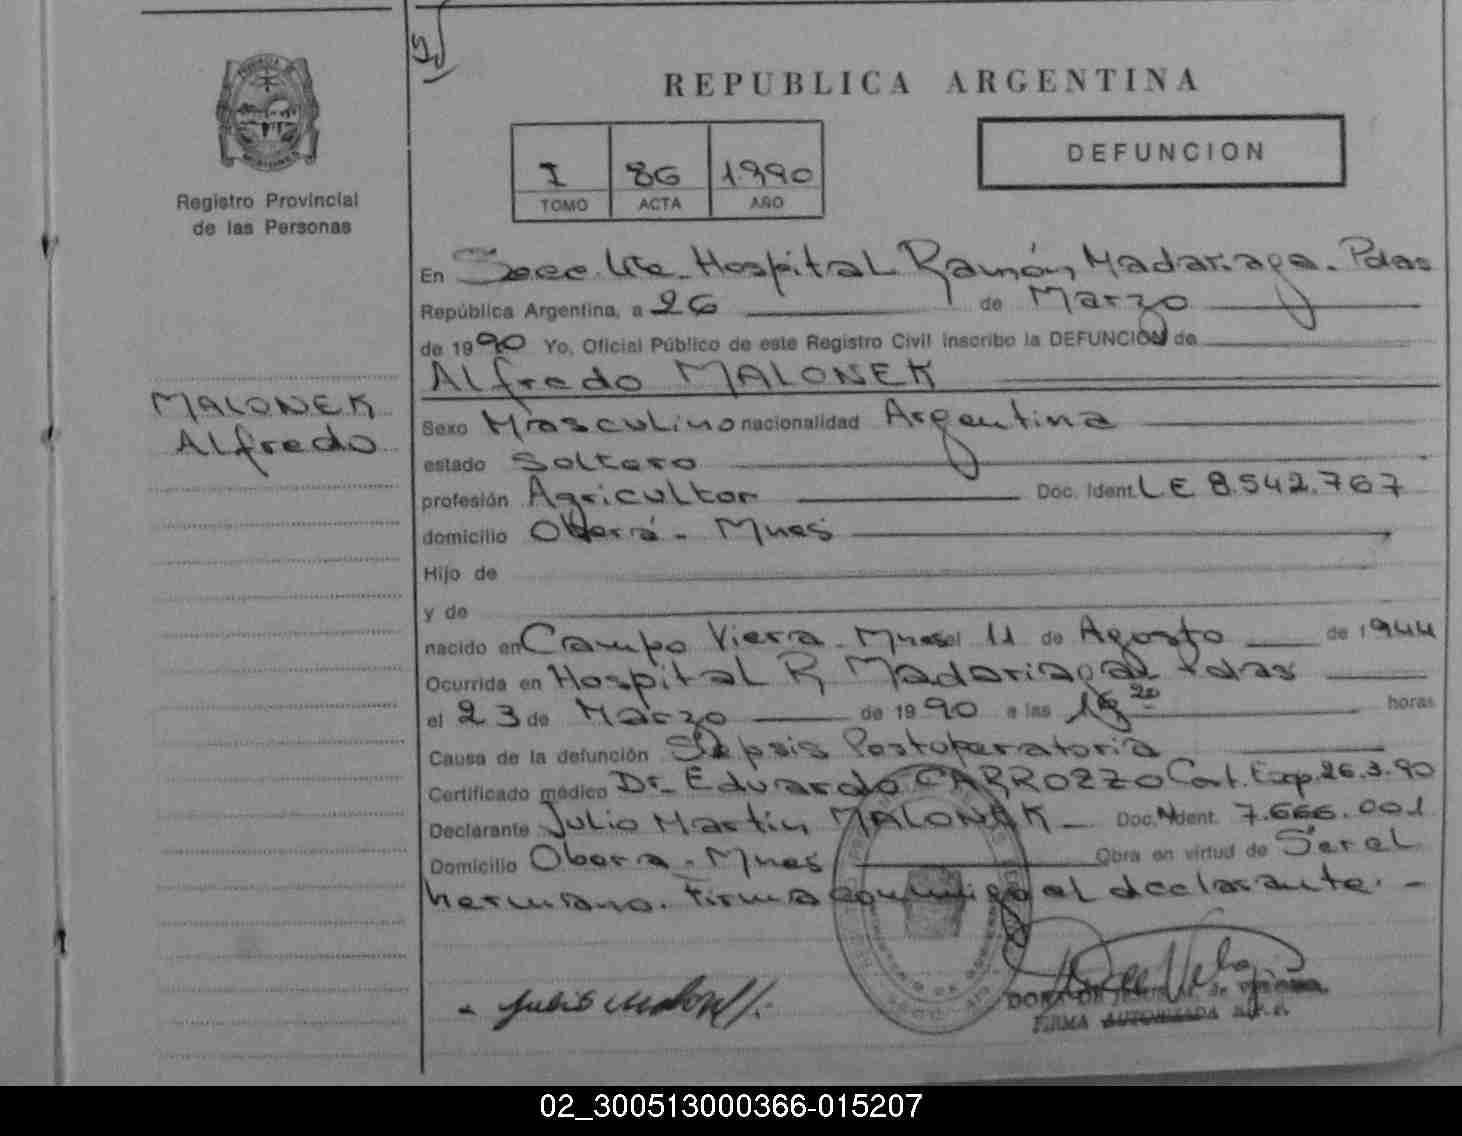 REPUBLICA ARGENTINA
DEFUNCION
I 86 1990
TOMO ACTA AÑO
Registro Provincial
de las Personas
MALONEK
Alfredo
En Secc. Hospital Ramón Madariaga. Pdas
República Argentina, a 26 de Marzo
de 1990 Yo, Oficial Público de este Registro Civil inscribo la DEFUNCION de
Alfredo MALONEK
Sexo Masculino nacionalidad Argentina
estado Soltero
profesión Agricultor Doc. Ident. LE 8.542.767
domicilio Oberá - Mnes
Hijo de
y de
nacido en Campo Viera - Mnes el 11 de Agosto de 1944
Ocurrida en Hospital R Madariaga Pdas
el 23 de Marzo de 1990 a las horas
Causa de la defunción Sepsis Postoperatoria
Certificado médico Dr. Eduardo CARROZZO Cert. Exp. 26.3.90
Declarante Julio Martin MALONEK - Doc. Ident. 7.666.001
Domicilio Obera - Mnes Obra en virtud de Ser el
hermano. Firma conmigo el declarante. -
FIRMA AUTORIZADA
02_300513000366-015207